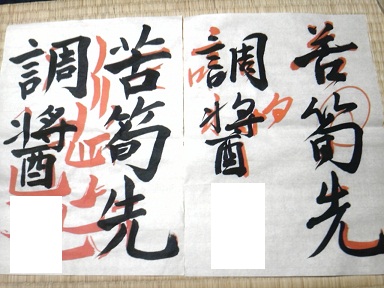 苦筍先
調醬
苦筍先
調醬